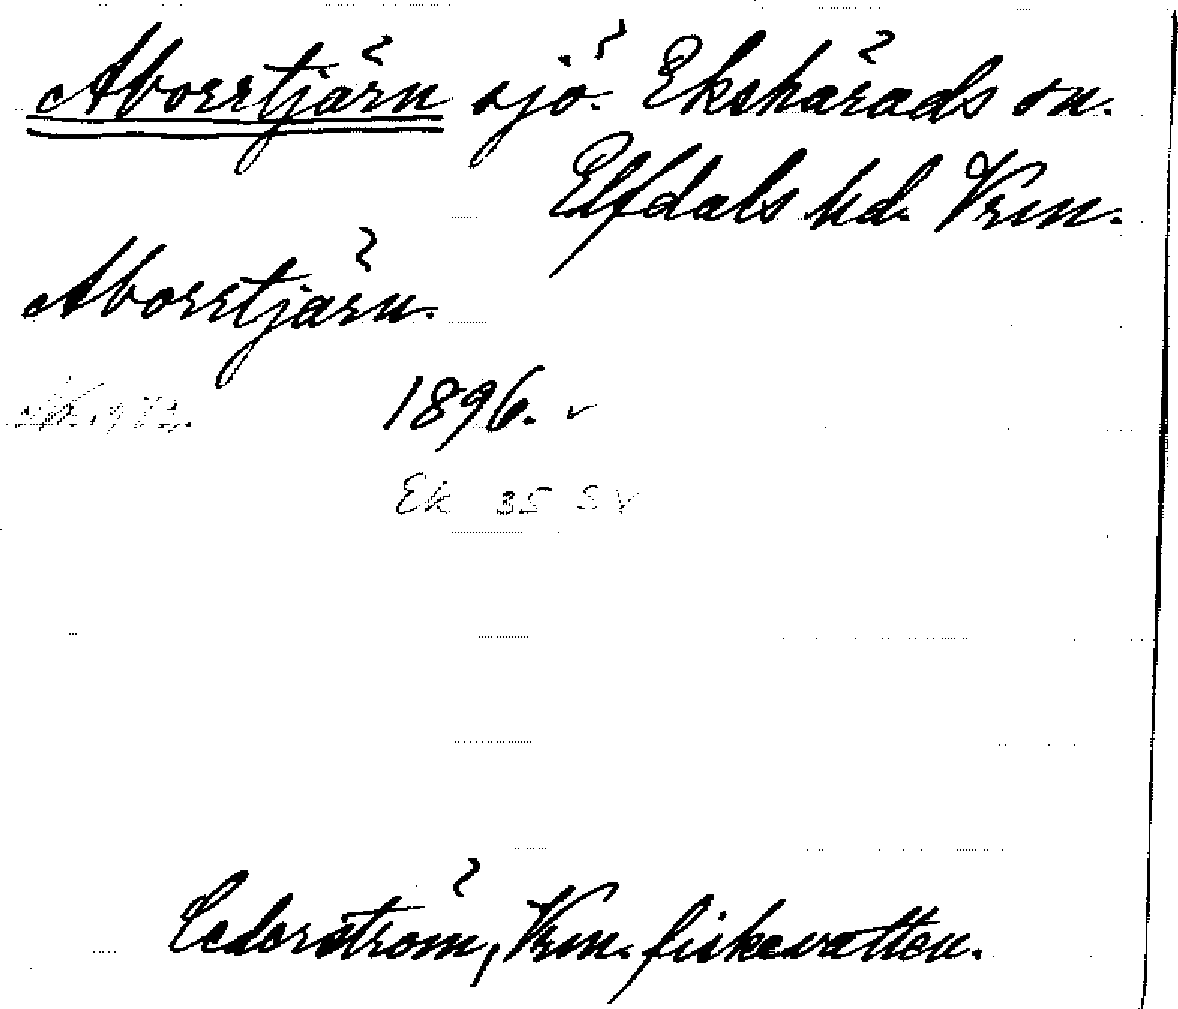 Aborrtjärn sjö. Ekshärads sn.
Elfdals hd. Vrm.
Aborrtjärn.
1896.
Ek 35 SV
Cederström, Vrm. fiskevatten.